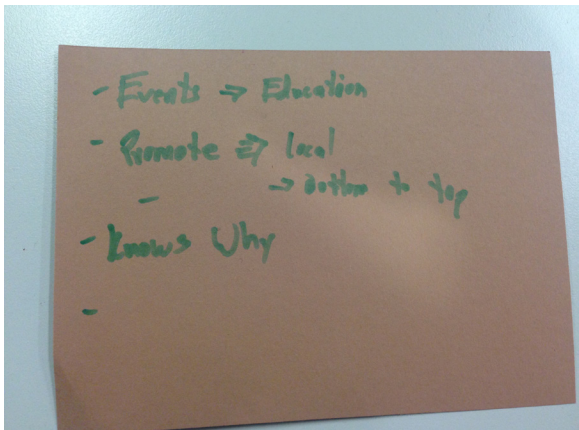 - Events → Education
- Promote ⇒ local
- → Bottom to top
- Knows Why
-